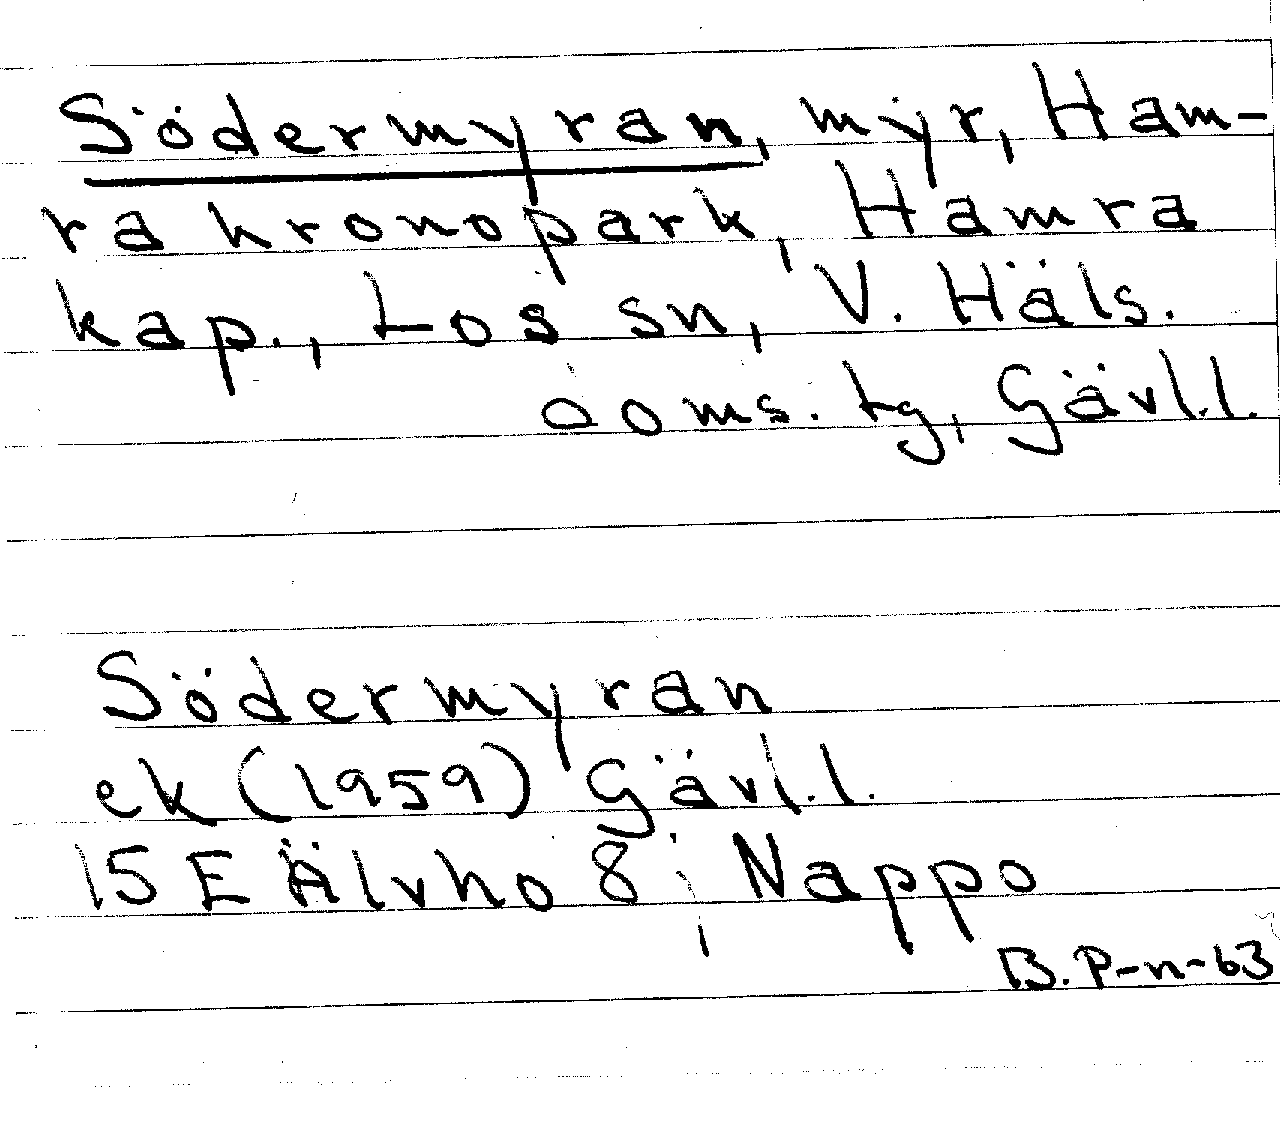 Södermyran, myr, Ham-
ra kronopark, Hamra
kap., Los sn, V. Häls.
ooms. tg, Gävl.l.
Södermyran
ek (1959) Gävl.l.
15 E Älvho 8 ; Nappo
B. P-n-63